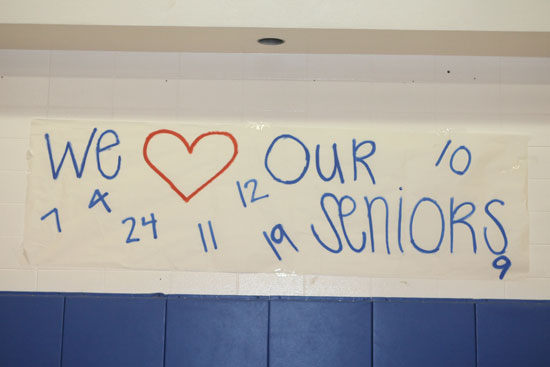 We ♥ Our 10
7 4 24 11 12 19 Seniors 9